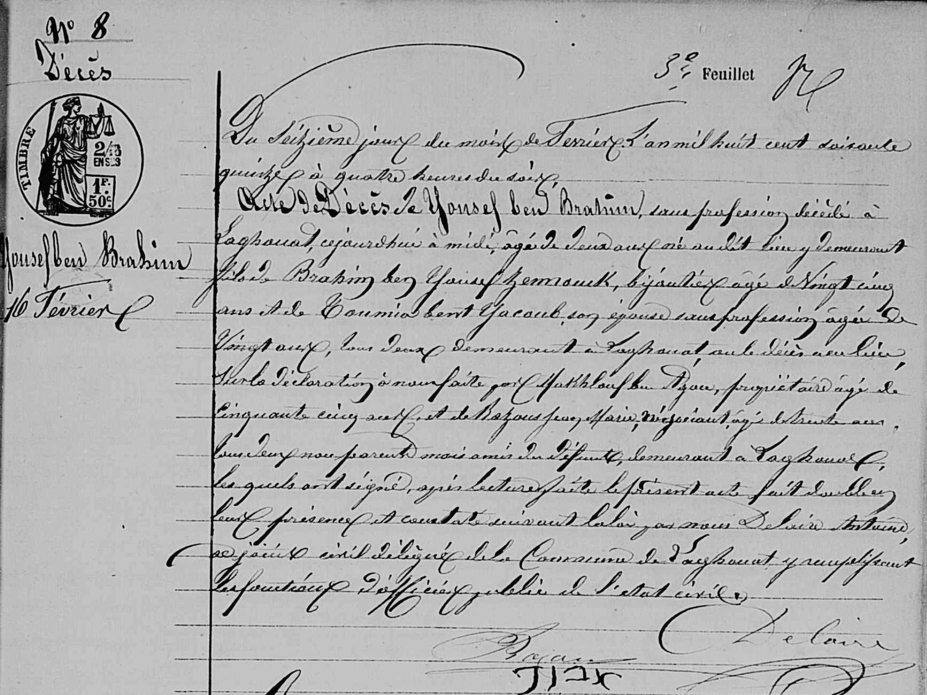 N° 8
Décès
3e Feuillet
TIMBRE
2/43
EN SUS
1F.
50c
Yousef ben Brahim
16 Février
Du Seizième jour du mois de Février l'an mil huit cent soixante
quinze à quatre heures du soir,
Acte de Décès de Yousef ben Brahim, sans profession décédé à
Laghouat, cejourdhui à midi, âgé de deux ans né au dit lieu y demeurant
fils de Brahim ben Yousef Zemrouck, bijoutier âgé de Vingt cinq
ans et de Toumia bent Yacoub, son épouse sans profession âgée de
Vingt ans, tous deux demeurant à Laghouat, où le décès a eu lieu,
Sur la déclaration à nous faite par Makhlouf ben Azou, propriétaire âgé de
Cinquante cinq ans et de Jean Marie, négociant, âgé de trente ans,
tous deux non parents mais amis du défunt, demeurant à Laghouat,
lesquels ont signé, après lecture faite le présent acte fait double en
leur présence et constaté suivant la loi, par nous Delaire Antoine,
adjoint civil délégué de la Commune de Laghouat y remplissant
les fonctions d'officier public de l'état civil.
Delaire